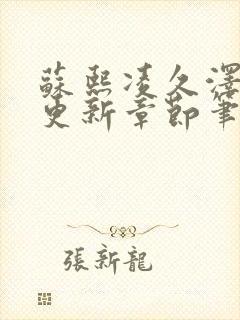 蘇熙凌久澤
更新章節筆
張新龍